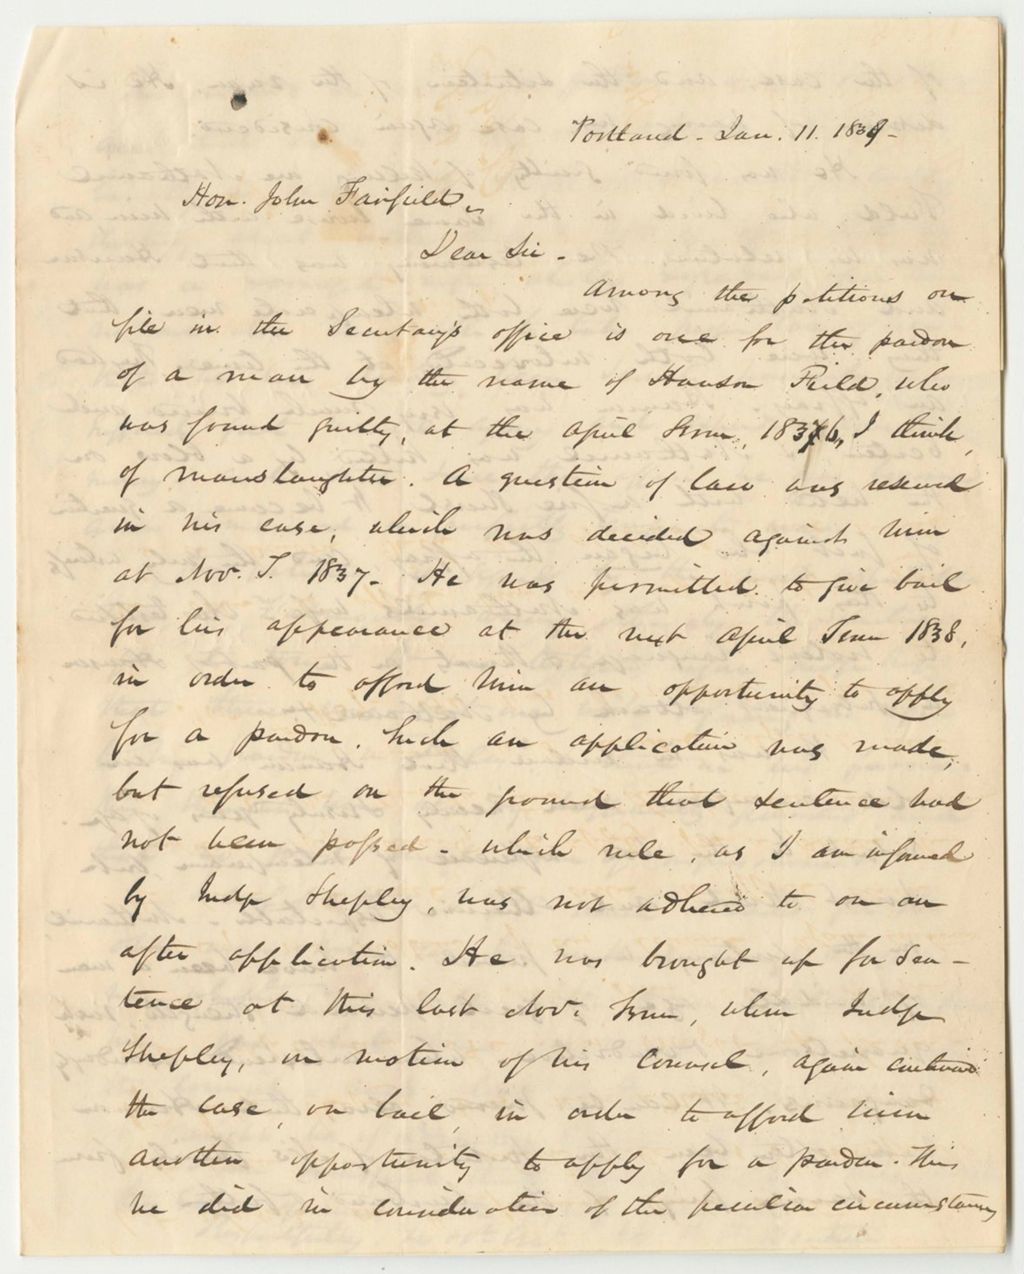 Portland - Jan. 11. 1839-
Hon. John Fairfield,
Dear Sir -
Among the petitions on
file in the Secretary's office is one for the pardon
of a man by the name of Hanson Field, who
was found guilty, at the April Term, 1836, I think,
of manslaughter. A question of law was reserved
in his case, which was decided against him
at Nov. T. 1837. He was permitted to give bail
for his appearance at the next April Term 1838,
in order to afford him an opportunity to apply
for a pardon. Such an application was made,
but refused on the ground that sentence had
not been passed - which rule, as I am informed
by Judge Shepley, was not adhered to on an
after application. He was brought up for Sen-
tence at this last Nov. Term, when Judge
Shepley, on motion of his Counsel, again continued
the case, on bail, in order to afford him
another opportunity to apply for a pardon. This
he did in consideration of the peculiar circumstances